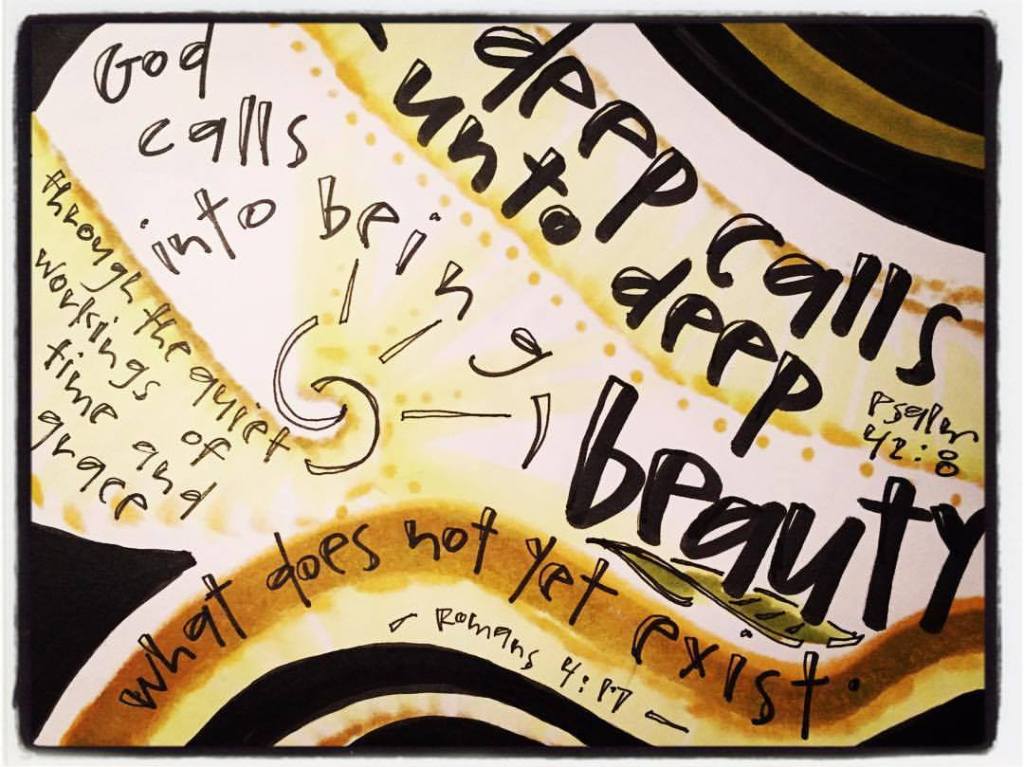 God
calls
into being
through the quiet
workings of
time and
grace
deep calls
unto
deep
Psalm
42:8
beauty
what does not yet exist.
- Romans 4:17 -